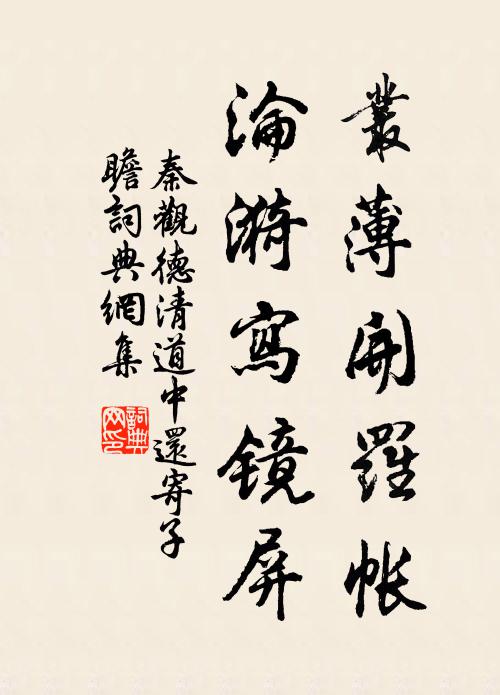 叢薄開羅帳
淪漪寫鏡屏
秦觀德清道中還寄子
瞻詞典網集
詞典
网印